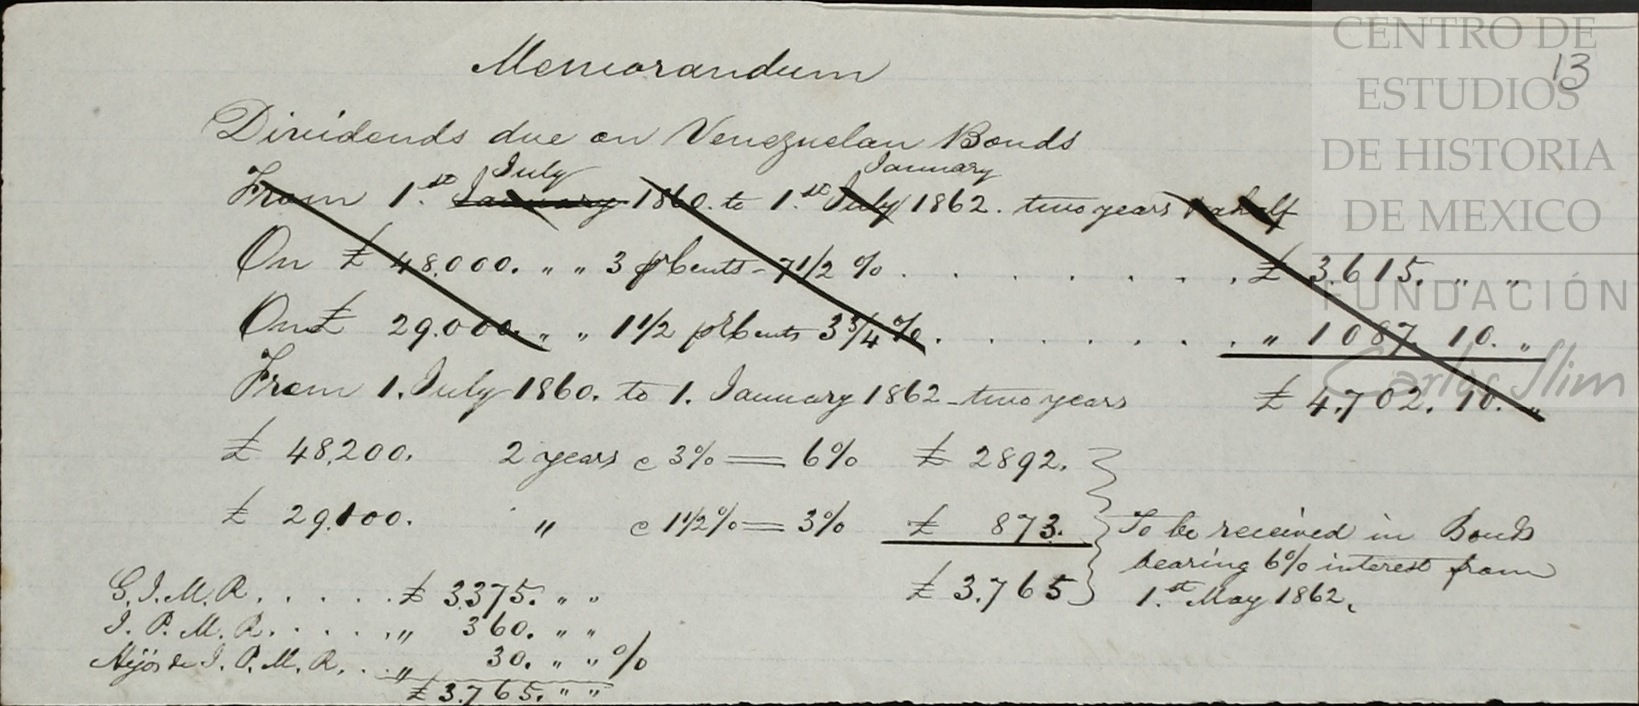 CENTRO DE
ESTUDIOS
DE HISTORIA
DE MEXICO
FUNDACIÓN
Carlos Slim
13
Memorandum
Dividends due on Venezuelan Bonds
July January
From 1.st January 1860. to 1.st July 1862. two years & a half
On £ 48.000. " " 3 pr Cents - 7 1/2 % . . . . . . . . £ 3.615. " "
On £ 29.000. " " 1 1/2 pr Cents 3 3/4 % . . . . . . . . " 1087. 10. "
£ 4.702. 10. "
From 1. July 1860. to 1. January 1862 - two years
£ 48,200. 2 years c 3% = 6% £ 2892.
£ 29.100. " c 1 1/2% = 3% £ 873.
£ 3.765
To be received in Bonds
bearing 6% interest from
1.st May 1862.
G. I. M. R. . . . . . £ 3375. " "
I. P. M. R. . . . . . " 360. " "
Hijos de I. P. M. R. . . " 30. " " %
£ 3.765. " "